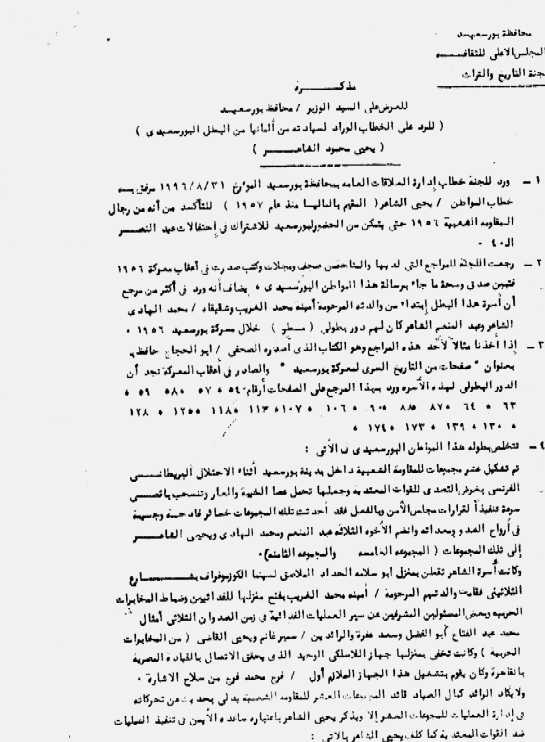 محافظة بورسعيد
المجلس الاعلى للثقافة
لجنة التاريخ والتراث
مذكرة
للعرض على السيد الوزير / محافظ بورسعيد
( للرد على الخطاب الوارد لسيادته من ألمانيا من البطل البورسعيدى )
( يحيى محمود الشاعر )
١ – ورد للجنة خطاب إدارة العلاقات العامه بمحافظة بورسعيد المؤرخ ١٩٩٦/٨/٣١ مرفق به
خطاب المواطن / يحيى الشاعر ( المقيم بألمانيا منذ عام ١٩٥٧ ) للتأكد من أنه من رجال
المقاومه الشعبية ١٩٥٦ حتى يتمكن من الحضور لبورسعيد للاشتراك في إحتفالات عيد النصر
الـ ٤٠ ٠
٢ – رجعت اللجنة المراجع التى لديها والمتاحه من صحف ومجلات وكتب صدرت في أعقاب معركة ١٩٥٦
فتبين صدق وصحة ما جاء برسالة هذا المواطن البورسعيدى ، يضاف أنه ورد في أكثر من مرجع
أن أسرة هذا البطل إبتداء من والدته المرحومة أمينه محمد الغريب وشقيقاه / محمد الهادى
الشاعر وعبد المنعم الشاعر كان لهم دور بطولى ( سطر ) خلال معركة بورسعيد ١٩٥٦ ٠
٣ – إذا أخذنا مثالاً لأحد هذه المراجع وهو الكتاب الذى أصدره الصحفي / ابو الحجاج حافظ
بعنوان " صفحات من التاريخ السرى لمعركة بورسعيد " والصادر في أعقاب المعركة نجد أن
الدور البطولى لهذه الأسره ورد بهذا المرجع على الصفحات أرقام ٥٤ ، ٥٧ ، ٥٨ ، ٥٩ ،
٦٣ ، ٦٤ ، ٨٧ ، ٨٨ ، ٩٠ ، ١٠٦ ، ١٠٧ ، ١١٣ ، ١١٨ ، ١٢٥ ، ١٢٨
، ١٣٠ ، ١٣٩ ، ١٧٣ ، ١٧٤ ٠
٤ – تتلخص بطوله هذا المواطن البورسعيدى في الآتى :
تم تشكيل عشر مجموعات للمقاومة الشعبية داخل مدينة بورسعيد أثناء الاحتلال البريطانى
الفرنسى بغرض التصدى للقوات المعتديه وجعلها تحمل عصا الخيبة والعار وتنسحب بأقصى
سرعة تنفيذاً لقرارات مجلس الأمن وبالفعل فقد أحدثت تلك المجموعات خسائر فادحة وجسيمة
في أرواح العدو ومعداته وانضم الأخوه الثلاثه عبد المنعم ومحمد الهادى ويحيى الشاعر
إلى تلك المجموعات ( المجموعه الخامسه والمجموعه الثامنه )٠
وكانت أسرة الشاعر تقطن بمنزل أبو سلامه الحداد الملاصق لسينما الكوزموغراف بشارع
الثلاثينى فقامت والدتهم المرحومة / أمينه محمد الغريب بفتح منزلها للفدائيين وضباط المخابرات
الحربيه وبعض المسئولين المشرفين عن سير العمليات الفدائية في زمن العدوان الثلاثى أمثال
محمد عبد الفتاح أبو الفضل وسعد عفرة والرائدين / سمير غانم ويحيى القاضى ( من المخابرات
الحربية ) وكانت تخفى بمنزلها جهاز اللاسلكى الوحيد الذى يحقق الاتصال بالقيادة المصرية
بالقاهرة وكان يقوم بتشغيل هذا الجهاز الملازم أول / فرج محمد فرج من سلاح الاشارة ٠
ولايكاد الرائد كمال الصياد قائد المجموعات العشر للمقاومه الشعبية يدلى بحديث عن تحركاته
في إدارة العمليات للمجموعات العشر إلا ويذكر يحيى الشاعر باعتباره ساعده الأيمن في تنفيذ العمليات
ضد القوات المعتديه كما كلف يحيى الشاعر بالآتى :